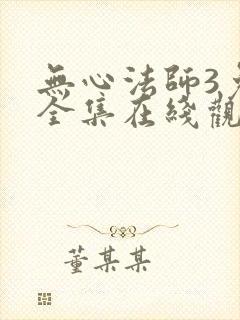 無心法師3
全集在綫觀
董某某